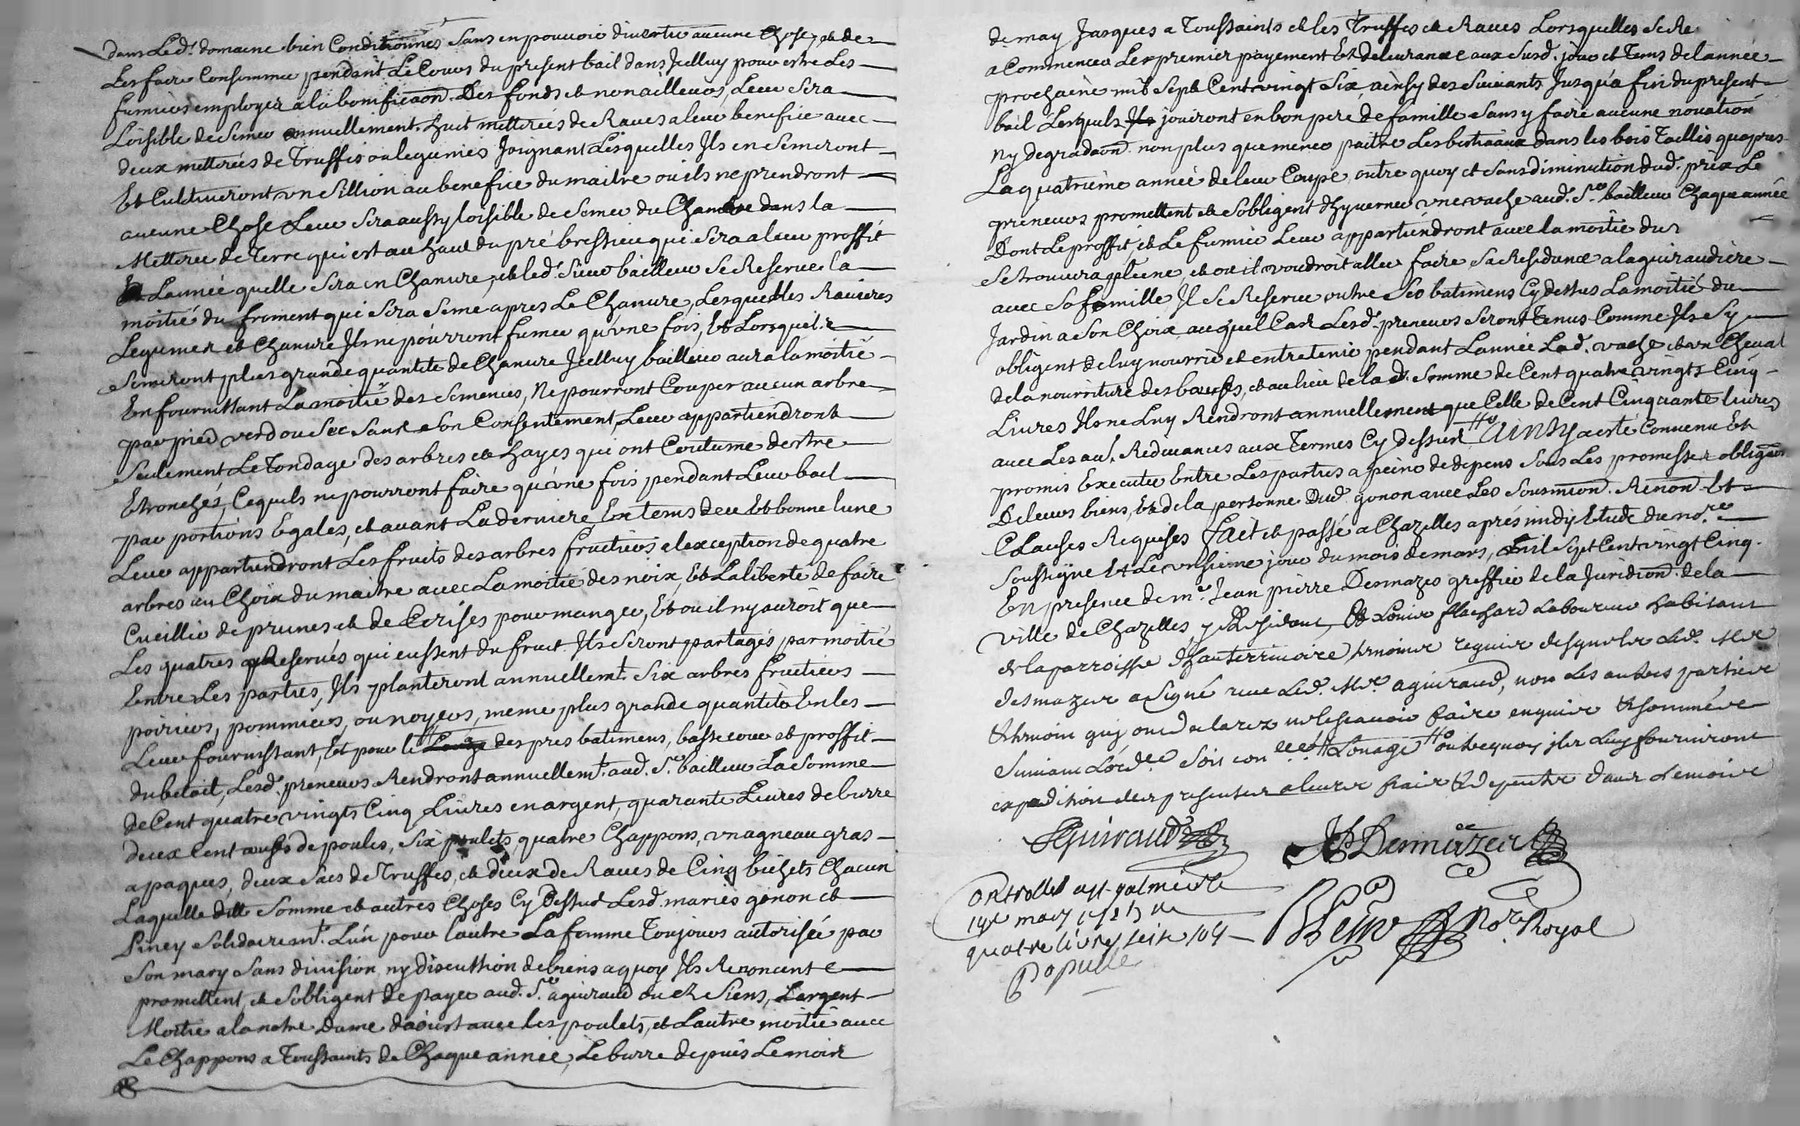 dans Led.t domaine bien Conditionnés Sans en pouvoir divertir aucune Chose, et de
Les faire Consommer pendant Le Cours du present bail dans Jcelluy pour estre Les
fumiers employez a la bonification Des fonds et non ailleurs, Leur Sera
Loisible de Semer annuellement huit metterées de Raves a leur benefice avec
deux metterées de Truffes ou legumes Joignant Lesquelles Ils en Semeront
Et Cultiveront un Sillion au benefice du maitre ou ils ne prendront
aucune Chose Leur Sera aussy loisible de Semer du Chanvre dans la
Metterée de Terre qui est au haut du pré bressieu qui Sera a leur proffit
L'année quelle Sera en Chanvre, et led. Sieur bailleur Se Reserve la
moitié du froment qui Sera Semé apres Le Chanvre, Lesquelles Ravieres
Legumes et Chanvre Ils ne pourront fumer qu'une fois, Et Lorsquels
Semeront plus grande quantité de Chanvre Jcelluy bailleur aura la moitié
En fournissant La moitié des Semences, Ne pourront Couper aucun arbre
par pied verd ou Sec Sans Son Consentement, Leur appartiendront
Seulement Le Tondage des arbres et hayes qui ont Coutume destre
Etronchés, Cequils ne pourront faire qu'une fois pendant Leur bail
par portions Egales, et avant La derniere En tems deu Et bonne lune
Leur appartiendront Les fruits des arbres fruitiers a lexception de quatre
arbres au Choix du maitre avec La moitié des noix, Et La liberté de faire
Cueillir de prunes et de Cerises pour manger, Et ou il ny auroit que
Les quatres Reservés qui eussent du fruit Ils Seront partagés par moitié
Entre Les parties, Ils planteront annuellem.t Six arbres fruitiers
poiriers, pommiers, ou noyers, meme plus grande quantité En les
Leur fournissant, Et pour le Louage des pres batimens, basse cour et proffit
du betail, Lesd. preneurs Rendront annuellem.t aud. S.r bailleur La Somme
de Cent quatre vingts Cinq Livres en argent, quarante Livres de burre
deux Cent oeufs de poules, Six poulets, quatre Chappons, un agneau gras
a paques, deux Sacs de Truffes, et deux de Raves de Cinq bichets Chacun
Laquelle ditte Somme et autres Choses Cy Dessus Lesd. mariés gonon et
Piney Solidairem.t L'un pour l'autre La femme Toujours autorisée par
Son mary Sans division, ny discussion de biens a quoy Ils Renoncent
promettent, et Sobligent de payer aud. S.r aguiraud ou es Siens, Largent
Moitié a la notre Dame daoust avec les poulets, et Lautre moitié avec
Le Chappons a Toussaints de Chaque année, Le burre depuis Lemois
de may Jusques a Toussaints et les Truffes et Raves Lorsquelles Sere
a Commencer Le premier payement Et delivrance aux susd. jours et Tems de lannée
prochaine mil Sept Cent vingt Six, ainsy des Suivants Jusqu'a fin du present
bail Lesquels Ils jouiront en bon pere de famille Sans y faire aucune novation
ny degradaon. non plus que mener paitre Les bestiaux dans les bois Taillis qu'apres
La quatrieme année de leur Coupe, outre quoy et Sans diminution dud. prix Le
preneurs promettent et Sobligent dhyverner une vache aud. S.r bailleur Chaque année
Dont Le proffit et Le fumier Leur appartiendront avec la moitié du
Se trouvera pleine, et ou il voudroit aller faire Sa Residance a la guiraudiere
avec Sa famille Il Se Reserve outre Ses batimens Cy dessus La moitié du
Jardin a Son Choix auquel Cas Lesd. preneurs Seront Tenus Comme Ils Sy
obligent de luy nourrir et entretenir pendant Lannée Lad. vache et un Cheval
de la nourriture des boeufs, et au lieu de lad. Somme de Cent quatre vingts Cinq
Livres Ils ne Luy Rendront annuellement que Celle de Cent Cinquante livres
avec Les au.t Redevances aux Termes Cy dessus Ainsy a esté Convenu Et
promis Executer Entre Les parties a peine de depens Sous Les promesses obligaons
De leurs biens, Et de la personne Dud. gonon avec Les Sousmion. Renon. Et
Clauses Requises fait et passé a Chazelles aprés midy Etude du no.re
Soussigné Et Le unsieme jour du mois de mars, mil Sept Cent vingt Cinq.
En presence de m.e Jean pierre Desmazes greffier de la Juridion. de la
ville de Chazelles, y Residant, Et Louis flachard Laboureur habitant
de la parroisse d'hauterivoire temoins requis desquels Led. M.e
desmazes a Signé avec Led. M.r aguiraud, non les autres parties
Et temoin qui ont declarez ne le scavoir faire enquis Et sommés
Suivant L'ord.ce Soit con.llé Louage outre quoy ils luy fourniront
expedition des presentes a leurs frais Et depens dans Le mois
Aguiraud
JP Desmazes
Controllé a St galmier le
quatre livres seize sols
No.re Royal